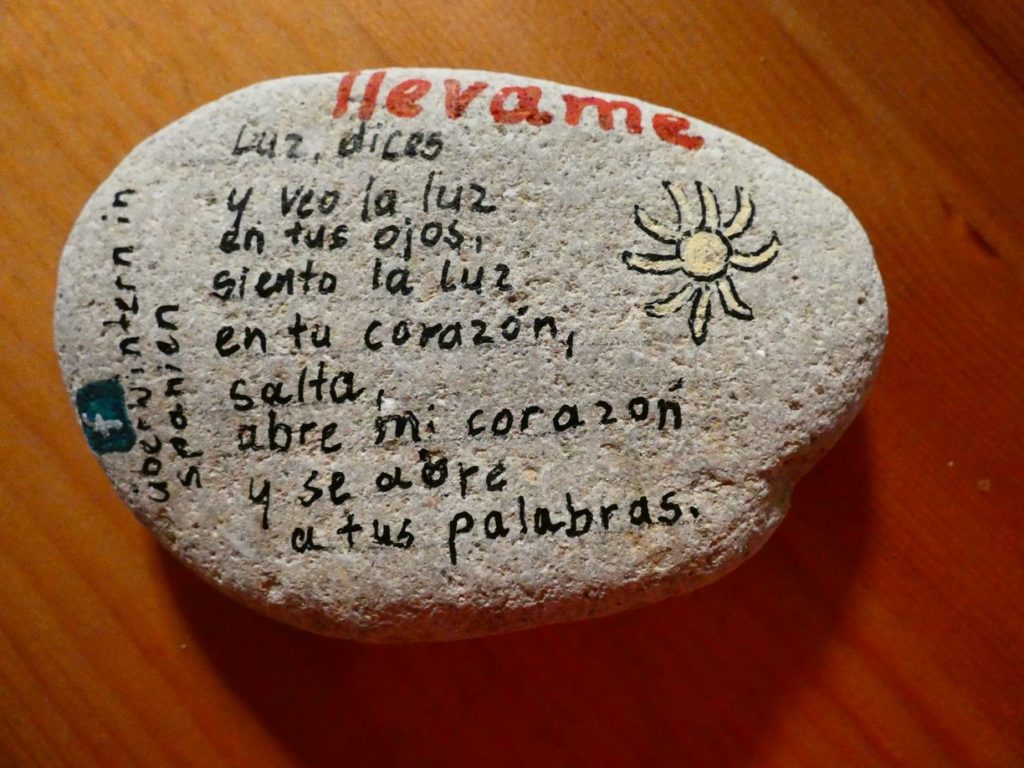 llevame
Luz, dices
y veo la luz
en tus ojos,
siento la luz
en tu corazón,
salta,
abre mi corazón
y se abre
a tus palabras.
f
überwintern in
spanien